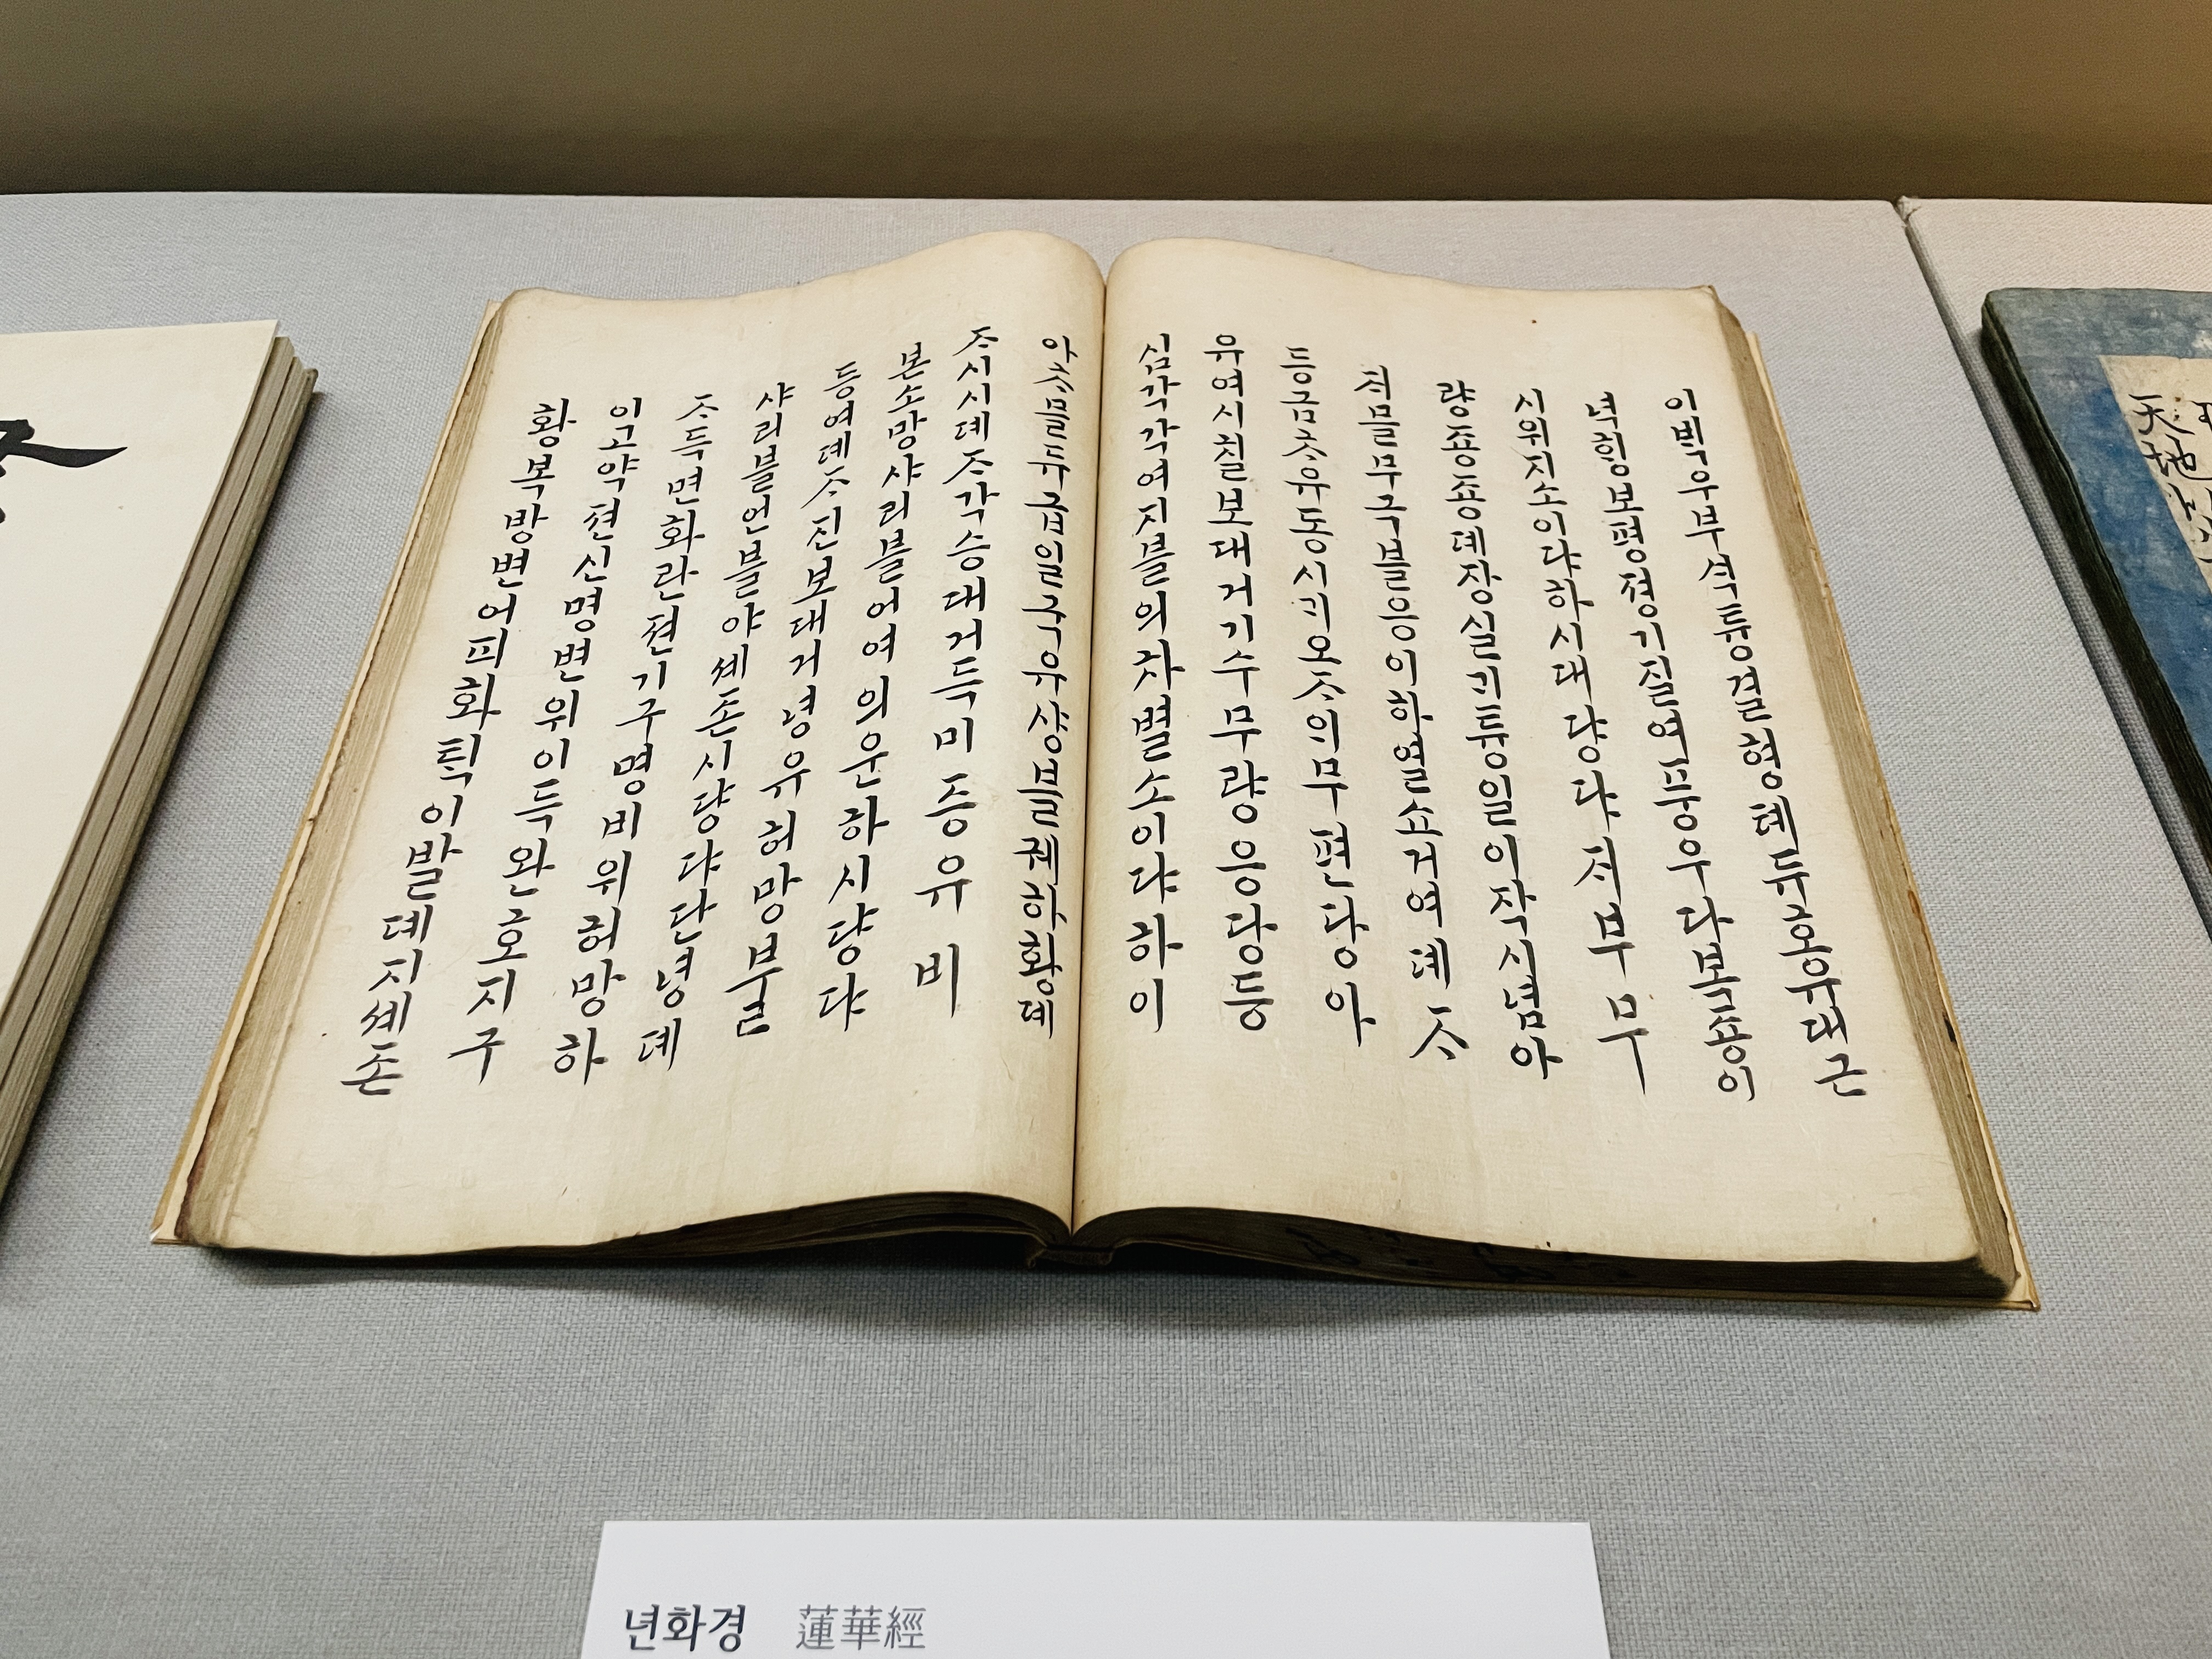 이ᄇᆡᆨ우부ᄉᆡᆨ튱결형톄듀호유대근
녁ᄒᆡᆼ보평졍기질여풍우다복죵이
시위지소이댜하시대댱댜ᄌᆡ부무
량죵죵뎨장실ᄀᆡ튱일이작시념아
ᄌᆡ믈무극블응이하열쇼거여뎨ᄌᆞ
등금ᄎᆞ유동시ᄀᆡ오ᄌᆞᄋᆡ무편당아
유여시칠보대거기수무량응당등
심각각여지블의차별소이댜하이
아ᄎᆞ믈듀급일국유샹블궤하황뎨
ᄌᆞ시시뎨ᄌᆞ각승대거득미증유비
본소망샤리블어여의운하시댱댜
등여뎨ᄌᆞ진보대거녕유허망불
샤리블언블야셰존시댱댜단녕뎨
ᄌᆞ득면화란젼기구명비위허망하
이고약젼신명변위이득완호지구
황복방변어피화ᄐᆡᆨ이발뎨지셰존
년화경 蓮華經
天地